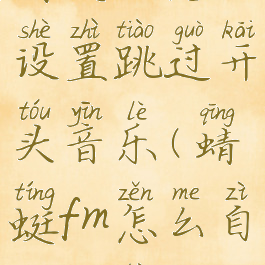 shè zhì tiào guò kāi
设置跳过开
tóu yīn lè qīng
头音乐(蜻
tíng zěn me zì
蜓fm怎么自